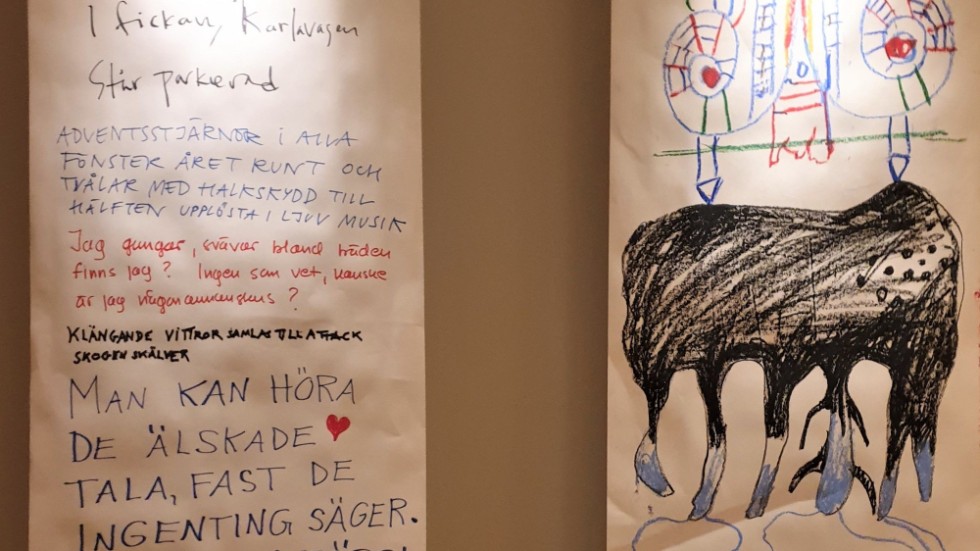 I fickan, Karlavagen
Står parkerad
ADVENTSSTJÄRNOR I ALLA
FÖNSTER ÅRET RUNT OCH
TVÅLAR MED HALKSKYDD TILL
HÄLFTEN UPPLÖSTA I LJUV MUSIK
Jag gungar, svävar bland träden
finns jag? Ingen som vet, kanske
är jag någon annanstans?
KLÄNGANDE VITTROR SAMLAS TILL ATTACK
SKOGEN SKÄLVER
MAN KAN HÖRA
DE ÄLSKADE
TALA, FAST DE
INGENTING SÄGER.